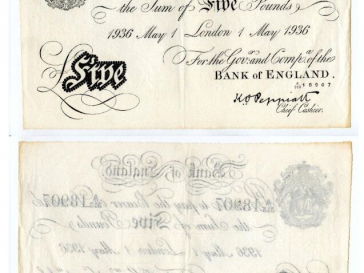 the Sum of Five Pounds
1936 May 1 London 1 May 1936
For the Gov.r and Comp.a of the
BANK of ENGLAND.
18907
£Five
K.O. Peppiatt
Chief Cashier.
Bank of England
18907 to pay the Bearer
the Sum of Five Pounds
1936 May 1 London 1 May 1936